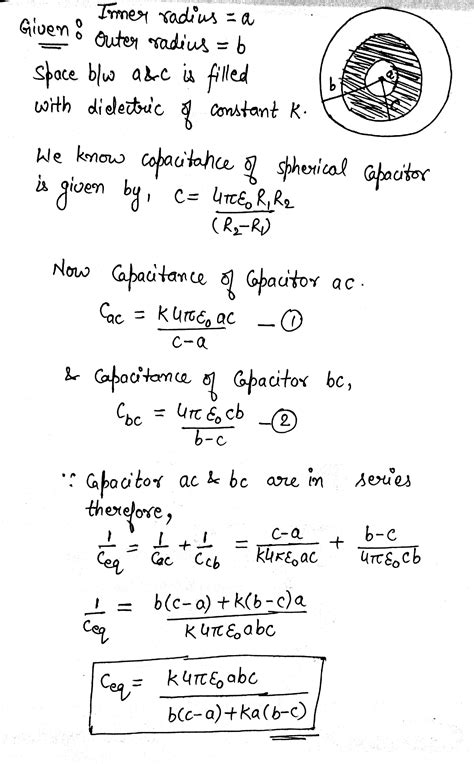 Given: Inner radius = a
Outer radius = b
Space b/w a&c is filled
with dielectric of constant K.
a
b
c
We know capacitance of spherical capacitor
is given by, C = 4πε₀R₁R₂/(R₂-R₁)
Now Capacitance of Capacitor ac.
Cac = K4πε₀ac/(c-a) — ①
& Capacitance of Capacitor bc,
Cbc = 4πε₀cb/(b-c) — ②
∵ Capacitor ac & bc are in series
therefore,
1/Ceq = 1/Cac + 1/Ccb = (c-a)/(K4πε₀ac) + (b-c)/(4πε₀cb)
1/Ceq = (b(c-a)+K(b-c)a)/(K4πε₀abc)
Ceq = K4πε₀abc/(b(c-a)+Ka(b-c))